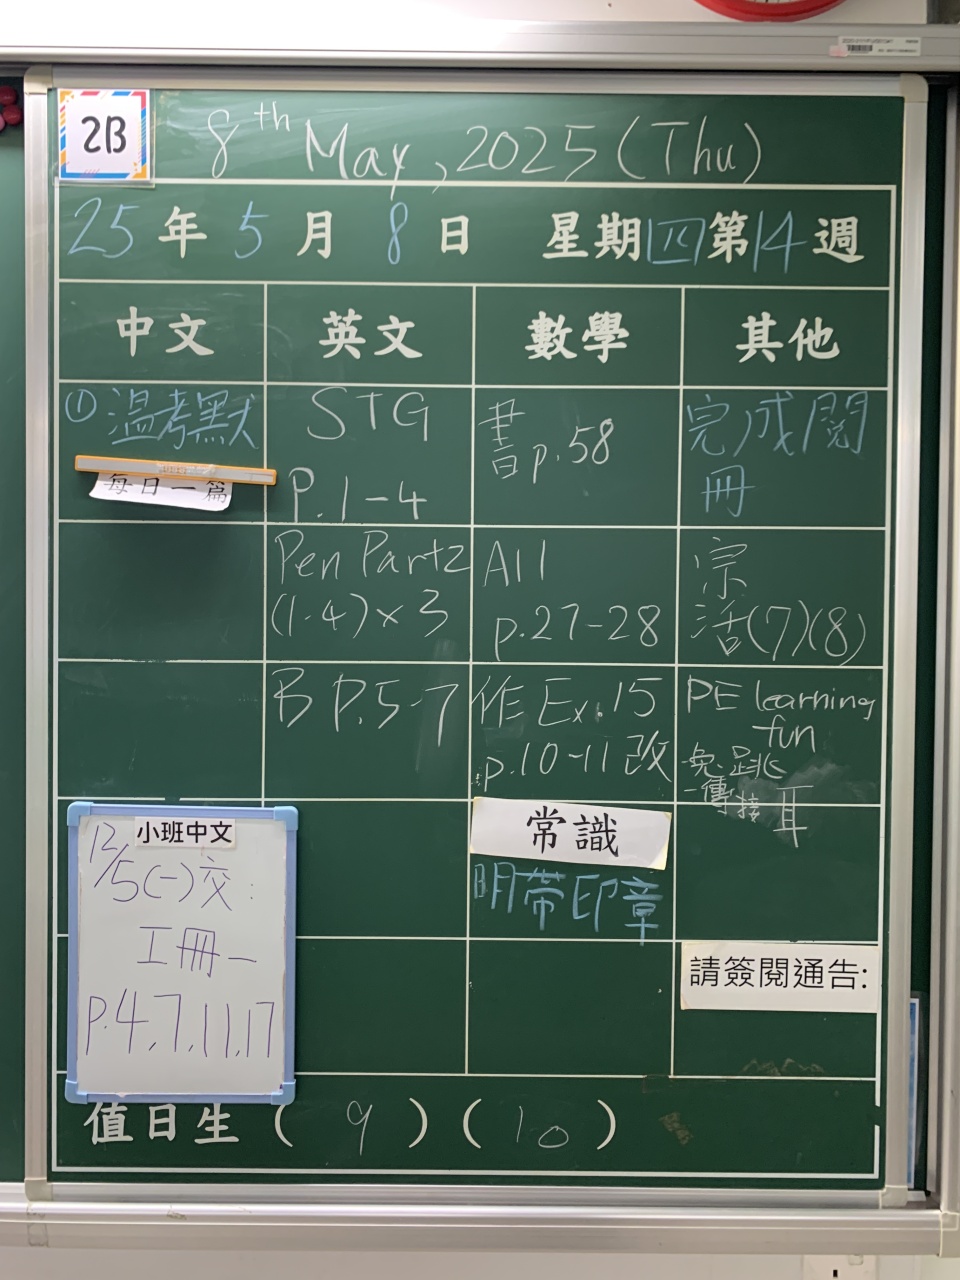 2B
8th May, 2025 (Thu)
25年5月8日 星期四第14週
中文 英文 數學 其他
①溫考默
每日一篇
STG
P.1-4
書p.58
完成閱
冊
Pen Part2
(1-4)×3
A11
p.27-28
宗
活(7)(8)
B P.5-7
作 Ex.15
p.10-11改
PE learning
fun
兔跳
傳接
耳
小班中文
12/5(一)交:
工冊一
P.4,7,11,17
常識
明帶印章
請簽閱通告:
值日生 ( 9 ) ( 10 )